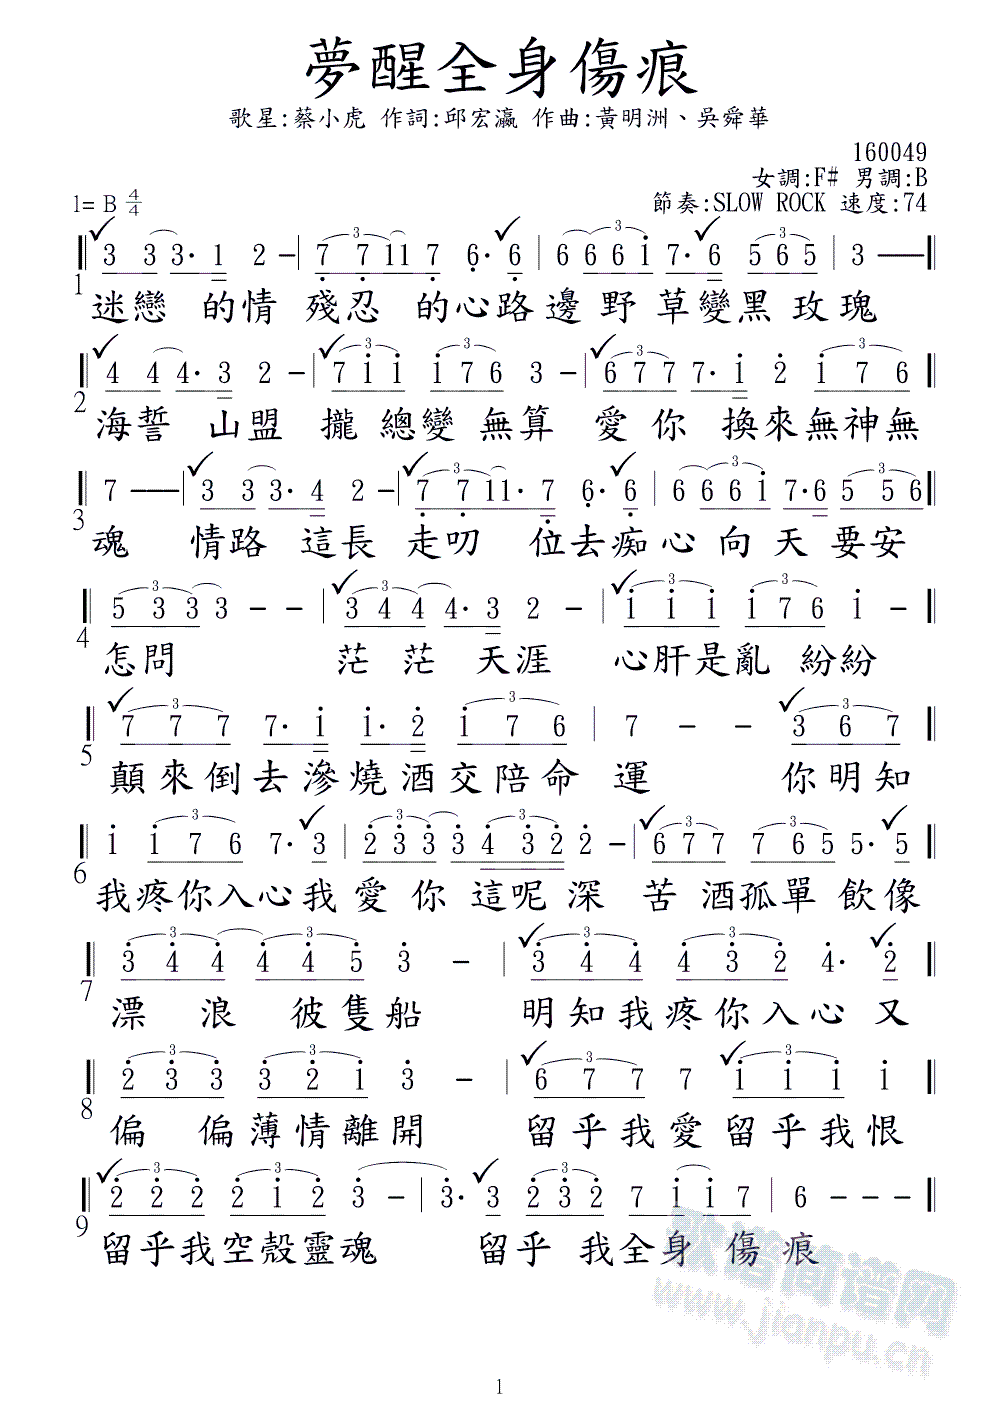 夢醒全身傷痕
歌星:蔡小虎 作詞:邱宏瀛 作曲:黃明洲、吳舜華
160049
女調:F# 男調:B
1= B 4/4 節奏:SLOW ROCK 速度:74
3 3 3· 1 2 - | 7 7 1 1 7 6· 6 | 6 6 6 i 7· 6 5 6 5 | 3 - - - ‖
1 迷戀 的情 殘忍 的心路邊野草變黑玫瑰
4 4 4· 3 2 - | 7 i i i 7 6 3 - | 6 7 7 7· i 2 i 7 6 ‖
2 海誓 山盟 攏總變無算 愛你 換來無神無
7 - - - | 3 3 3· 4 2 - | 7 7 1 1· 7 6· 6 | 6 6 6 i 7· 6 5 5 6 ‖
3 魂 情路 這長 走叨 位去痴心向天要安
5 3 3 3 - - | 3 4 4 4· 3 2 - | i i i i 7 6 i - ‖
4 怎問 茫茫 天涯 心肝是亂紛紛
7 7 7 7· i i· 2 i 7 6 | 7 - - 3 6 7 ‖
5 顛來倒去滲燒酒交陪命 運 你明知
i i 7 6 7· 3 | 2 3 3 3 4 3 2 2 - | 6 7 7 7 6 5 5· 5 ‖
6 我疼你入心我愛你 這呢深 苦酒孤單飲像
3 4 4 4 4 5 3 - | 3 4 4 4 3 2 4· 2 ‖
7 漂浪 彼隻船 明知我疼你入心又
2 3 3 3 2 i 3 - | 6 7 7 7 i i i i ‖
8 偏 偏薄情離開 留乎我愛留乎我恨
2 2 2 2 i 2 3 - | 3· 3 2 3 2 7 i i 7 | 6 - - - ‖
9 留乎我空殼靈魂 留乎 我全身 傷 痕
歌谱简谱网
www.jianpu.cn
1